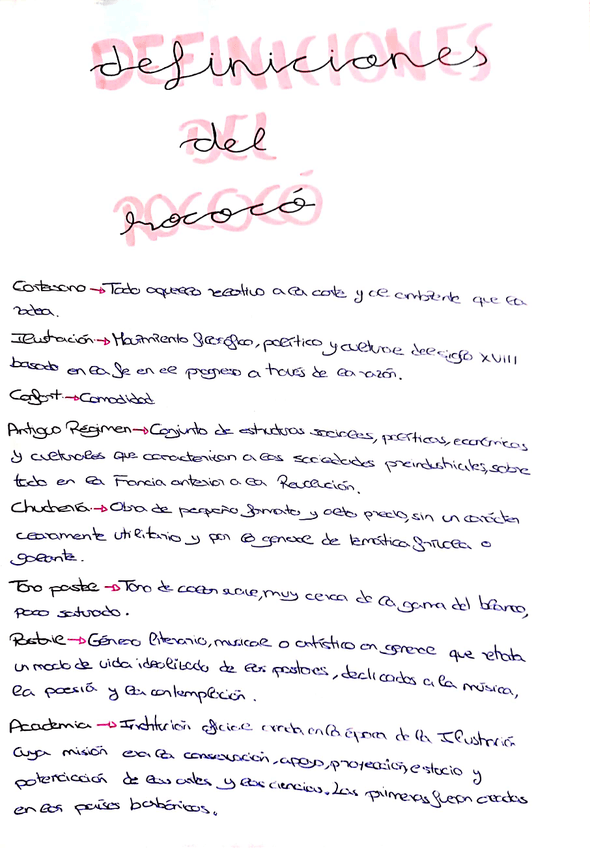 DEFINICIONES
definiciones
DEL
del
ROCOCÓ
rococó
Cortesano → Todo aquello relativo a la corte y el ambiente que la
rodea.
Ilustración → Movimiento filosófico, político y cultural del siglo XVIII
basado en la fe en el progreso a través de la razón.
Confort → Comodidad
Antiguo Régimen → Conjunto de estructuras sociales, políticas, económicas
y culturales que caracterizan a las sociedades preindustriales, sobre
todo en la Francia anterior a la Revolución.
Chuchería → Obra de pequeño formato y alto precio, sin un carácter
claramente utilitario y por lo general de temática frívola o
galante.
Tono pastel → Tono de color suave, muy cerca de la gama del blanco,
poco saturado.
Pastoral → Género literario, musical o artístico en general que retrata
un modo de vida idealizado de los pastores, dedicados a la música,
la poesía y la contemplación.
Academia → Institución oficial creada en la época de la Ilustración
cuya misión era la conservación, apoyo, protección, estudio y
potenciación de las artes y las ciencias. Las primeras fueron creadas
en los países borbónicos.